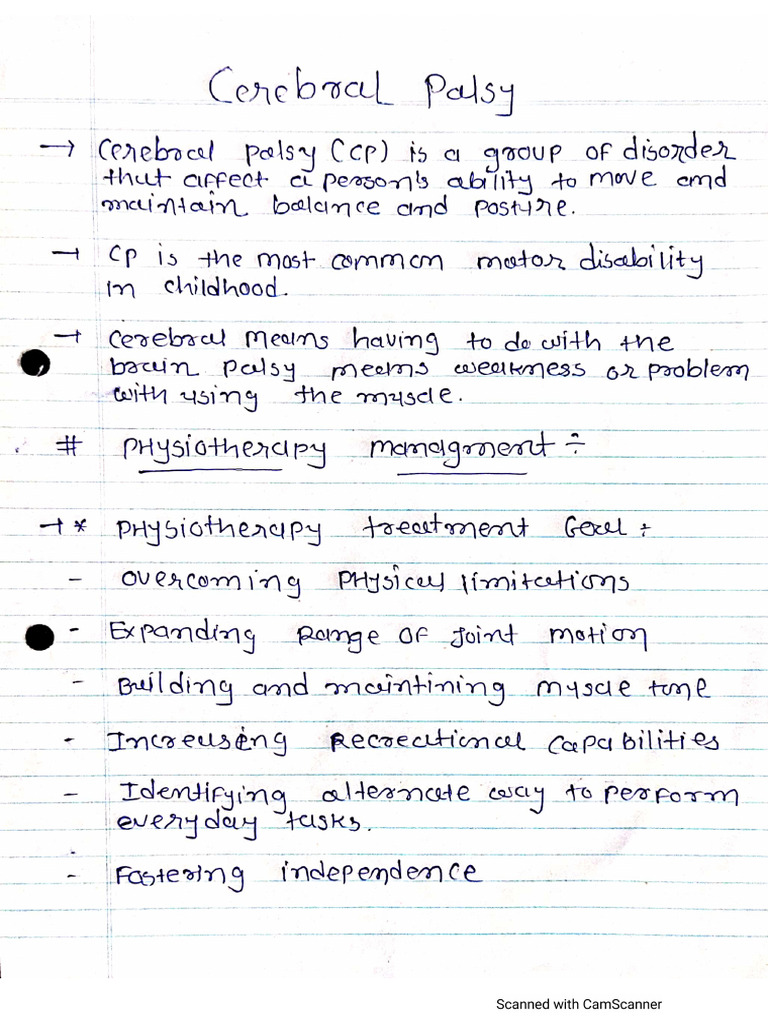 Cerebral Palsy
→ Cerebral palsy (CP) is a group of disorder
that affect a person's ability to move and
maintain balance and posture.
→ CP is the most common motor disability
in childhood.
→ Cerebral means having to do with the
brain palsy means weakness or problem
with using the muscle.
# PHysiotherapy managment ÷
→ * PHysiotherapy treatment Goal ÷
- Overcoming PHysical limitations
- Expanding Range of Joint motion
- Building and maintining muscle tone
- Increasing Recreational capabilities
- Identifying alternate way to perform
everyday tasks.
- Fastering independence
Scanned with CamScanner